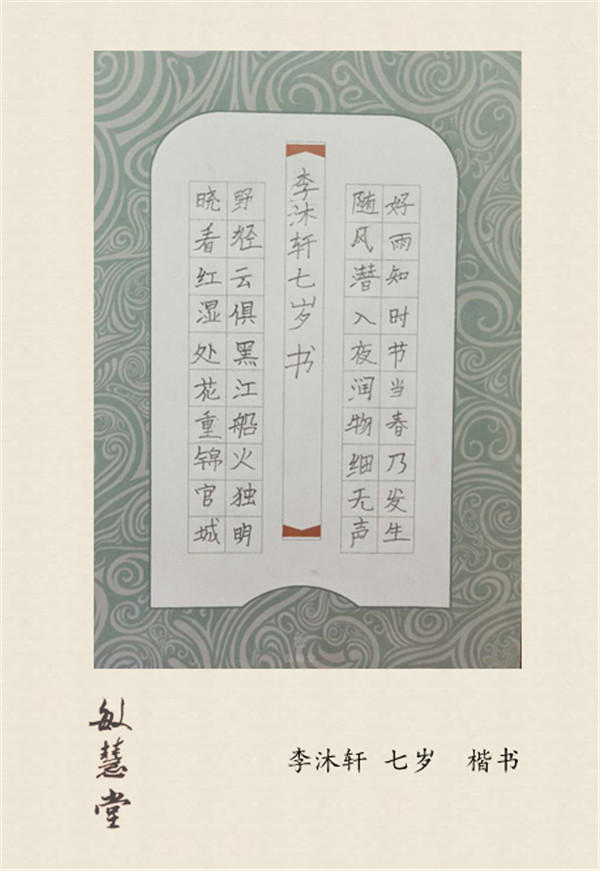 好雨知时节当春乃发生
随风潜入夜润物细无声
李沐轩七岁书
野径云俱黑江船火独明
晓看红湿处花重锦官城
敏慧堂
李沐轩 七岁 楷书